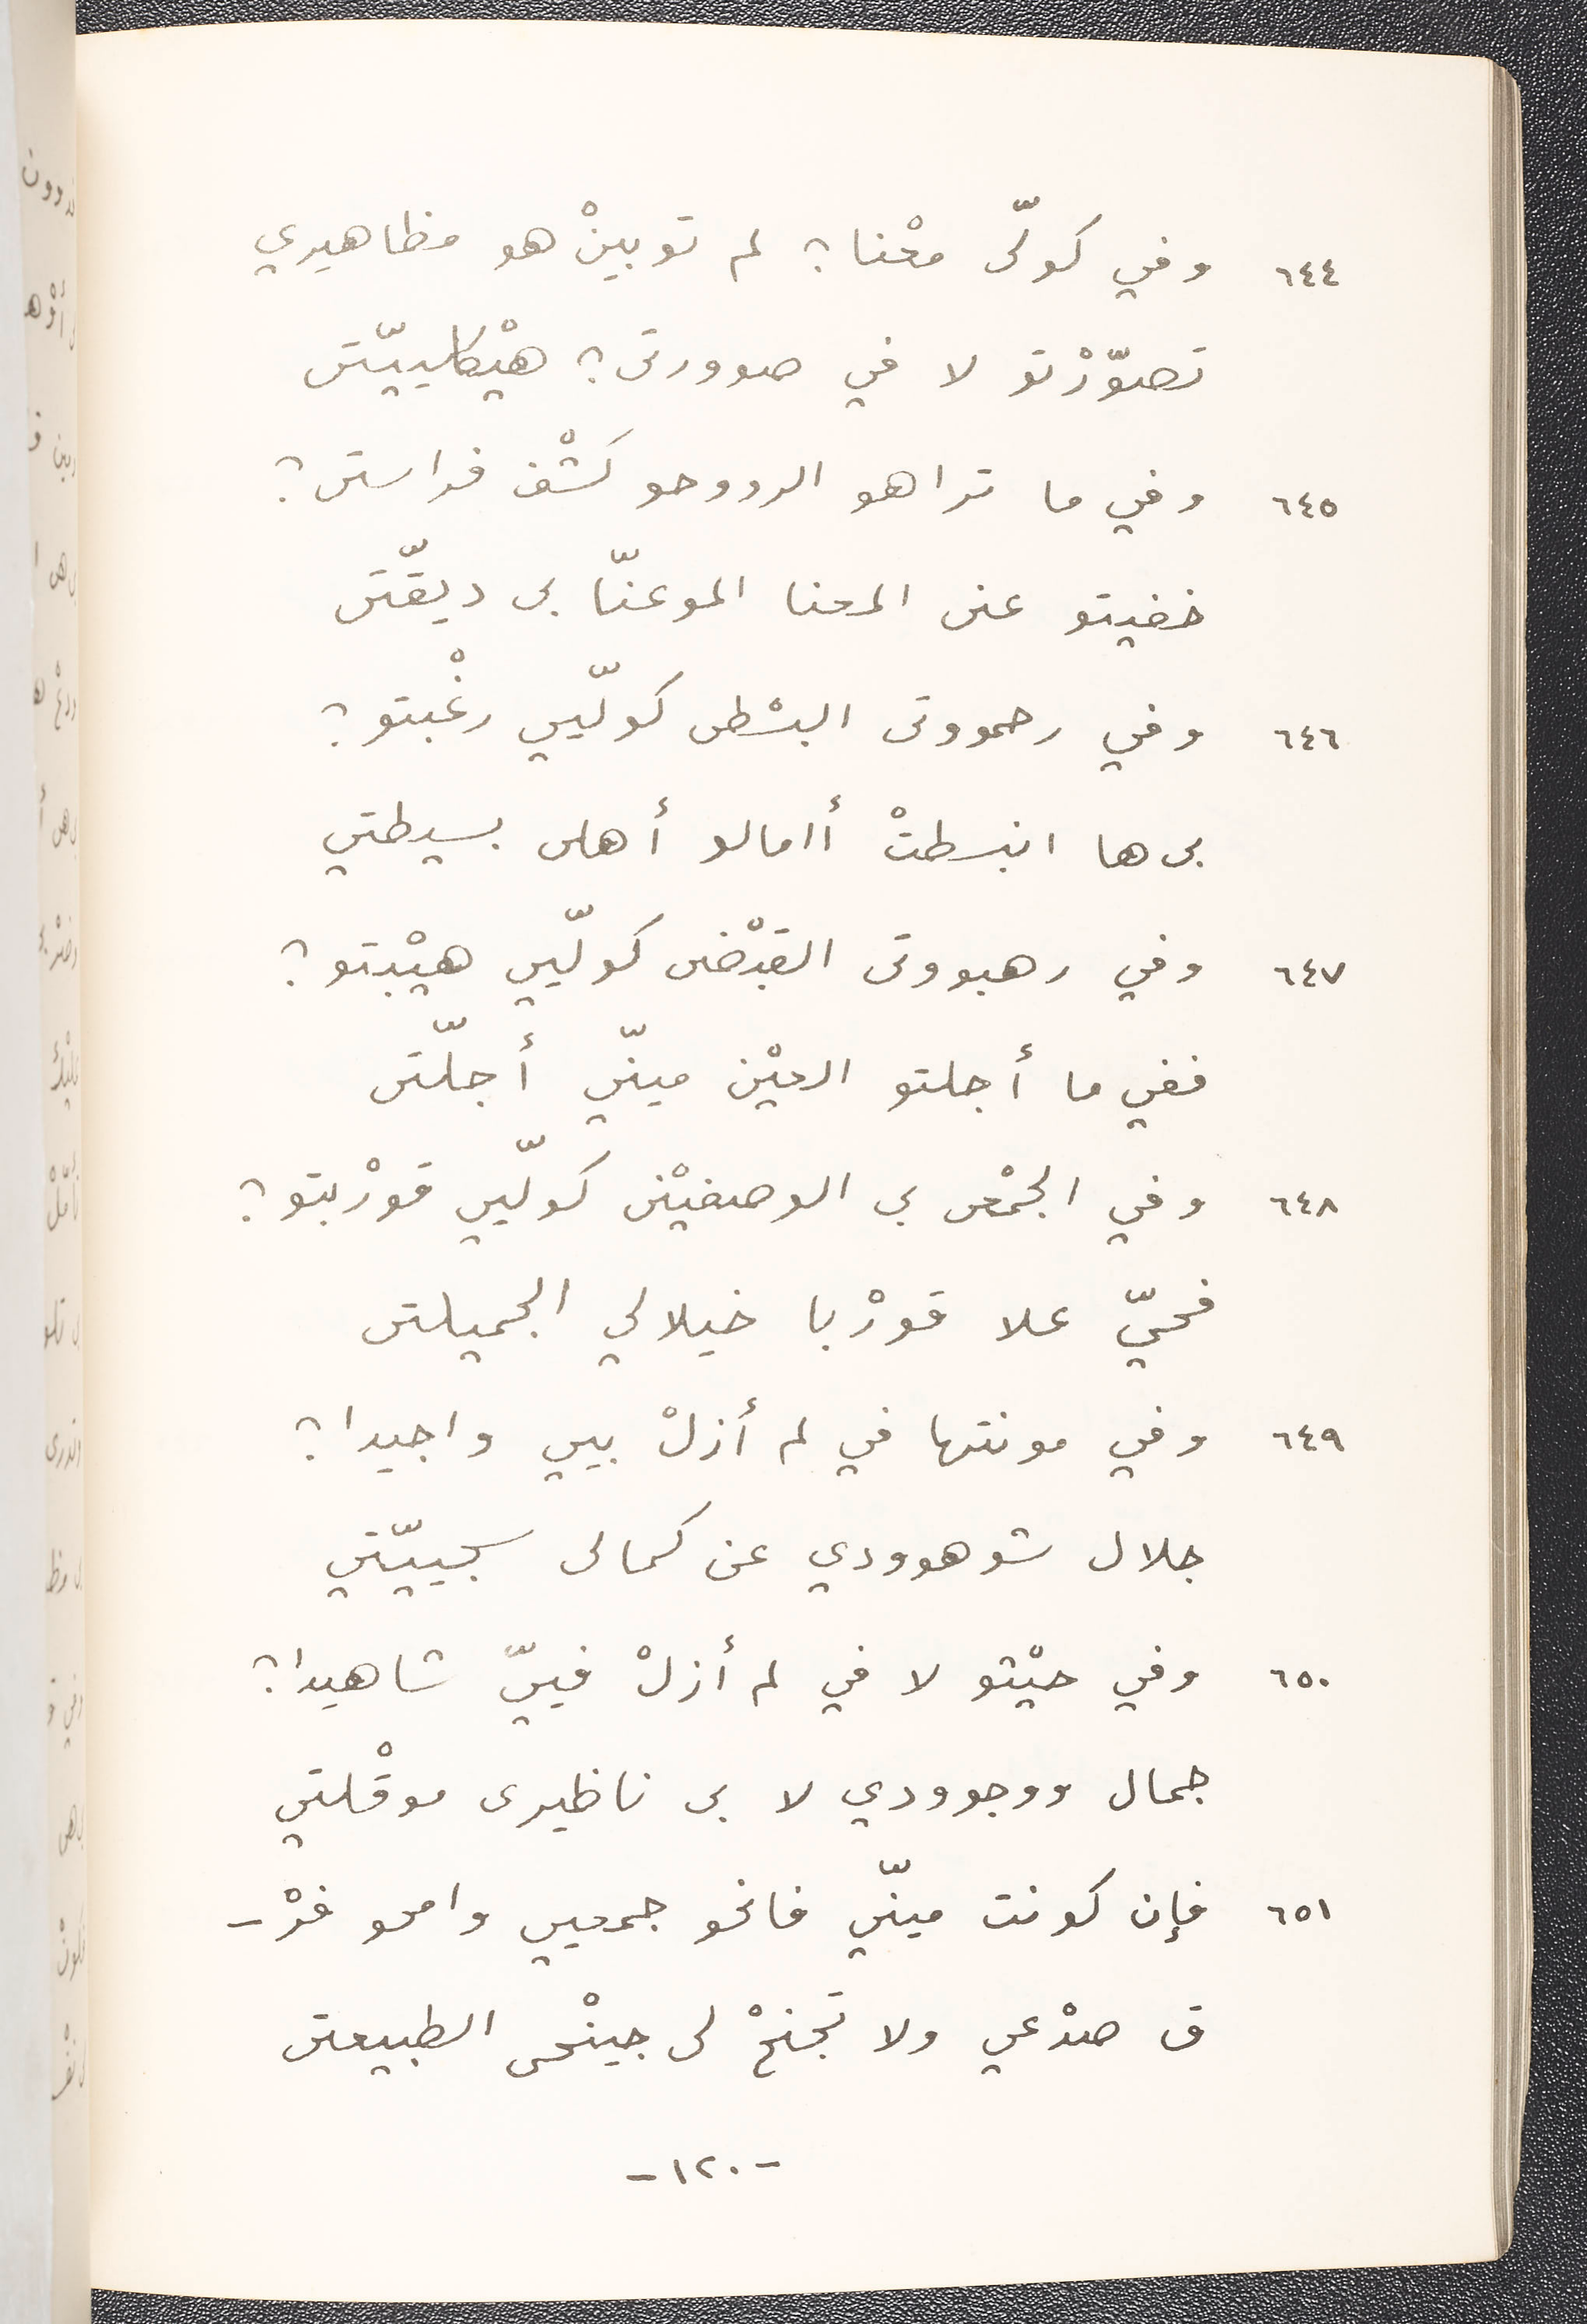 ٦٤٤ وفي كولّى معْنا؟ لم توبينْ هو مظاهيري
تصوّرْتو لا في صوورتى؟ هيْكلييّتى
٦٤٥ وفي ما تراهو الرووحو كشْفى فراستى؟
خفيتو عنى المعنا الموعنّا بى ديقّتى
٦٤٦ وفي رحمووتى البسْطى كولّيي رغْبتو؟
بى ها انبسطتْ أامالو أهلى بسيطتي
٦٤٧ وفي رهبووتى القبْضى كولّيي هيْبتو؟
ففي ما أجلتو العيْن مينّي أجلّتى
٦٤٨ وفي الجمْعى بى الوصفيْنى كولّيي قورْبتو؟
فحيّ علا قورْبا خيلالي الجميلتى
٦٤٩ وفي مونتها في لم أزلْ بيي واجيدا؟
جلال شوهوودي عن كمالى سجييّتي
٦٥٠ وفي حيْتو لا في لم أزلْ فييّ شاهيدا؟
جمال ووجوودي لا بى ناظيرى موقْلتي
٦٥١ فإن كونت مينّي فانحو جمعيي وامحو فرْ-
ق صدْعي ولا تجنحْ لى جينْحى الطبيعتى
-١٢٠-